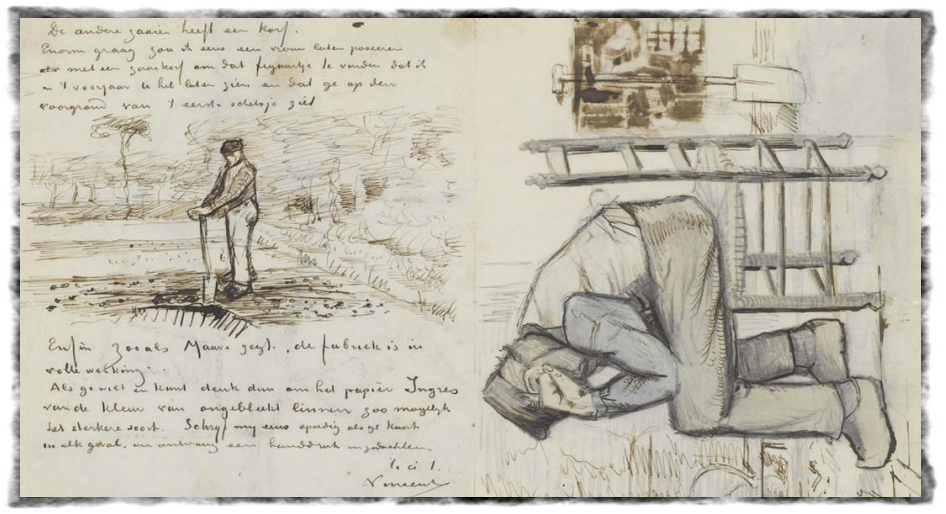 De andere zaaier heeft een korf.
Enorm graag zou ik eens een vrouw laten poseeren
met een zaaikorf om dat figuurtje te vinden dat ik
in 't voorjaar U heb laten zien en dat ge op den
voorgrond van 't eerste schetsje ziet
Enfin zooals Mauve zegt. „de fabriek is in
volle werking".
Als ge wilt en kunt denk dan om het papier Ingres
van de kleur van ongebleekt linnen zoo mogelijk
het sterkere soort. Schrijf my eens spoedig als ge kunt
in elk geval, en ontvang een handdruk in gedachten.
t. à t.
Vincent